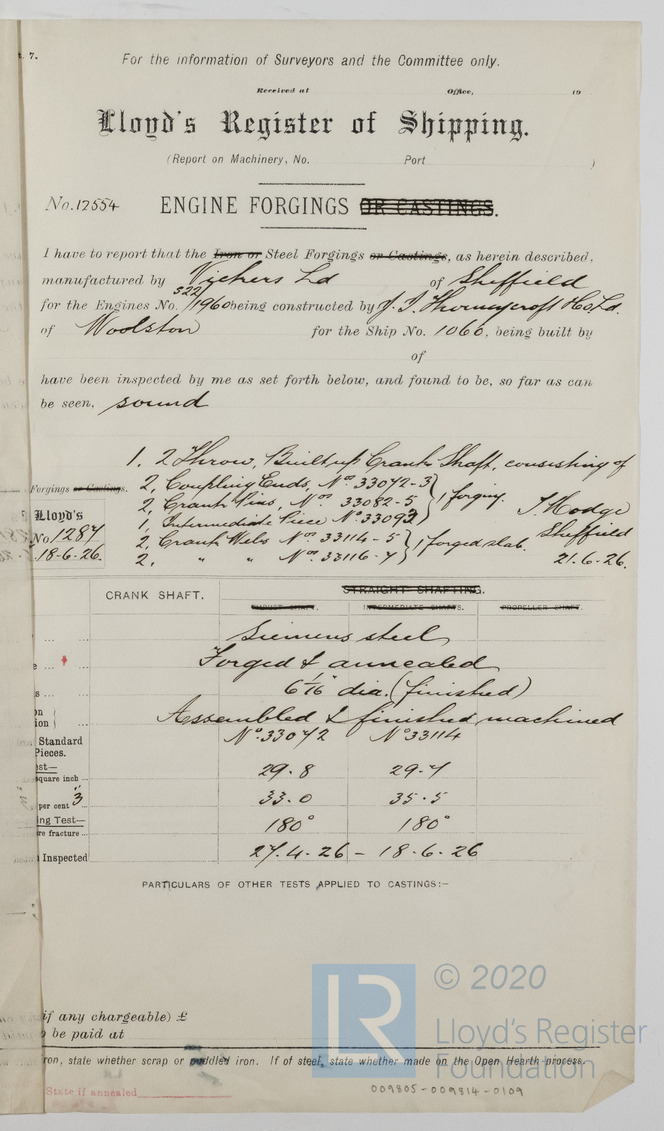 . 7.
For the information of Surveyors and the Committee only.
Received at Office, 19
Lloyd's Register of Shipping.
(Report on Machinery, No. Port )
No. 12554 ENGINE FORGINGS OR CASTINGS.
I have to report that the Iron or Steel Forgings or Castings, as herein described,
manufactured by Vickers Ld of Sheffield
for the Engines No. 522/1960 being constructed by J. I. Thornycroft & Co, Ld.
of Woolston for the Ship No. 1066, being built by
of
have been inspected by me as set forth below, and found to be, so far as can
be seen, sound
1. 2 Throw, Built up Crank Shaft, consisting of
Forgings or Castings. 2, Coupling Ends, Nos. 33072-3
2, Crank Pins, Nos 33082-5 } 1 forging. J. Hodge
Lloyd's 1, Intermediate Piece No 33093
No 1287 2, Crank Webs Nos 33114-5 } 1 forged slab. Sheffield
18-6-26. 2, " " Nos 33116-7 21.6.26.
CRANK SHAFT. STRAIGHT SHAFTING.
THRUST SHAFT. INTERMEDIATE SHAFTS. PROPELLER SHAFT.
Siemens steel
Forged & annealed
6 1/16" dia. (finished)
Assembled & finished machined
Standard No. 33072 No 33114
Pieces.
square inch 29.8 29.7
per cent 3" 33.0 35.5
ing Test—
re fracture 180° 180°
Inspected 27.4.26 - 18.6.26
PARTICULARS OF OTHER TESTS APPLIED TO CASTINGS:—
if any chargeable) £
be paid at
ron, state whether scrap or puddled iron. If of steel, state whether made on the Open Hearth process.
State if annealed
009805-009814-0109
LR © 2020
Lloyd's Register
Foundation